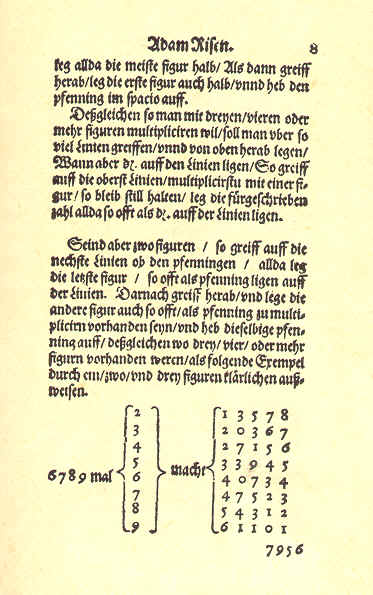 Adam Risen. 8
leg allda die meiste figur halb/ Als dann greiff
herab/leg die erste figur auch halb/vnnd heb den
pfenning im spacio auff.
Deßgleichen so man mit dreyen/vieren oder
mehr figuren multipliciren wil/soll man vber so
viel Linien greiffen/vnnd von oben herab legen/
Wann aber dꝛ. auff den Linien ligen/So greiff
auff die oberst Linien/multiplicirstu mit einer fi-
gur/ so bleib still halten/ leg die fürgeschrieben
zahl allda so offt als dꝛ. auff der Linien ligen.
Seind aber zwo figuren / so greiff auff die
nechste Linien ob den pfenningen / allda leg
die letste figur / so offt als pfenning ligen auff
der Linien. Darnach greiff herab/vnd lege die
andere figur auch so offt/als pfenning zu multi-
plicirn vorhanden seyn/vnd heb dieselbige pfen-
ning auff/deßgleichen wo drey/vier/oder mehr
figurn vorhanden weren/als folgende Exempel
durch ein/zwo/vnd drey figuren klärlichen auß-
weisen.
2 1 3 5 7 8
3 2 0 3 6 7
4 2 7 1 5 6
5 3 3 9 4 5
6789 mal 6 macht 4 0 7 3 4
7 4 7 5 2 3
8 5 4 3 1 2
9 6 1 1 0 1
7956